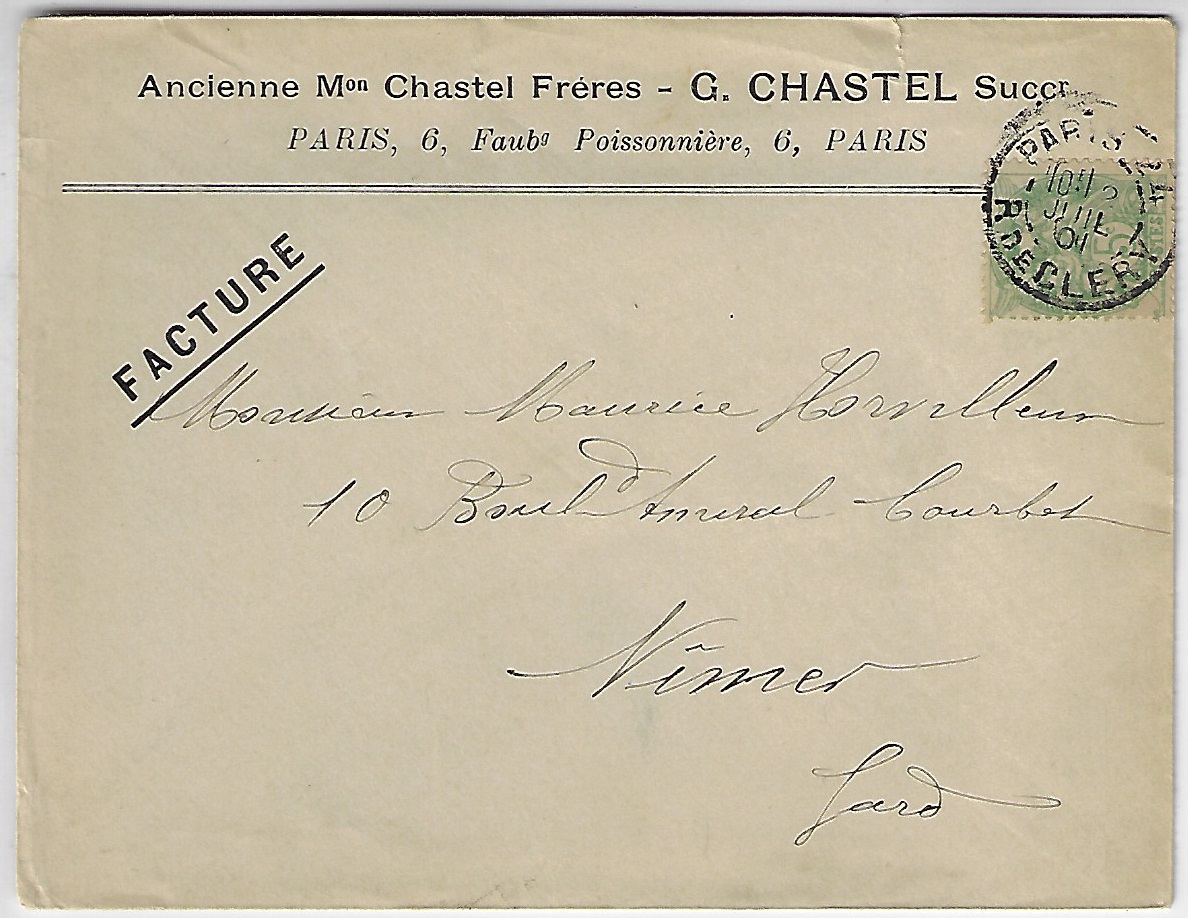 Ancienne Mon Chastel Fréres - G. CHASTEL Succr
PARIS, 6, Faubg Poissonnière, 6, PARIS
PARIS
JUIL
01
R DE CLERY
5
STES
FACTURE
Monsieur Maurice Horvilleur
10 Bould Amiral Courbet
Nîmes
Gard